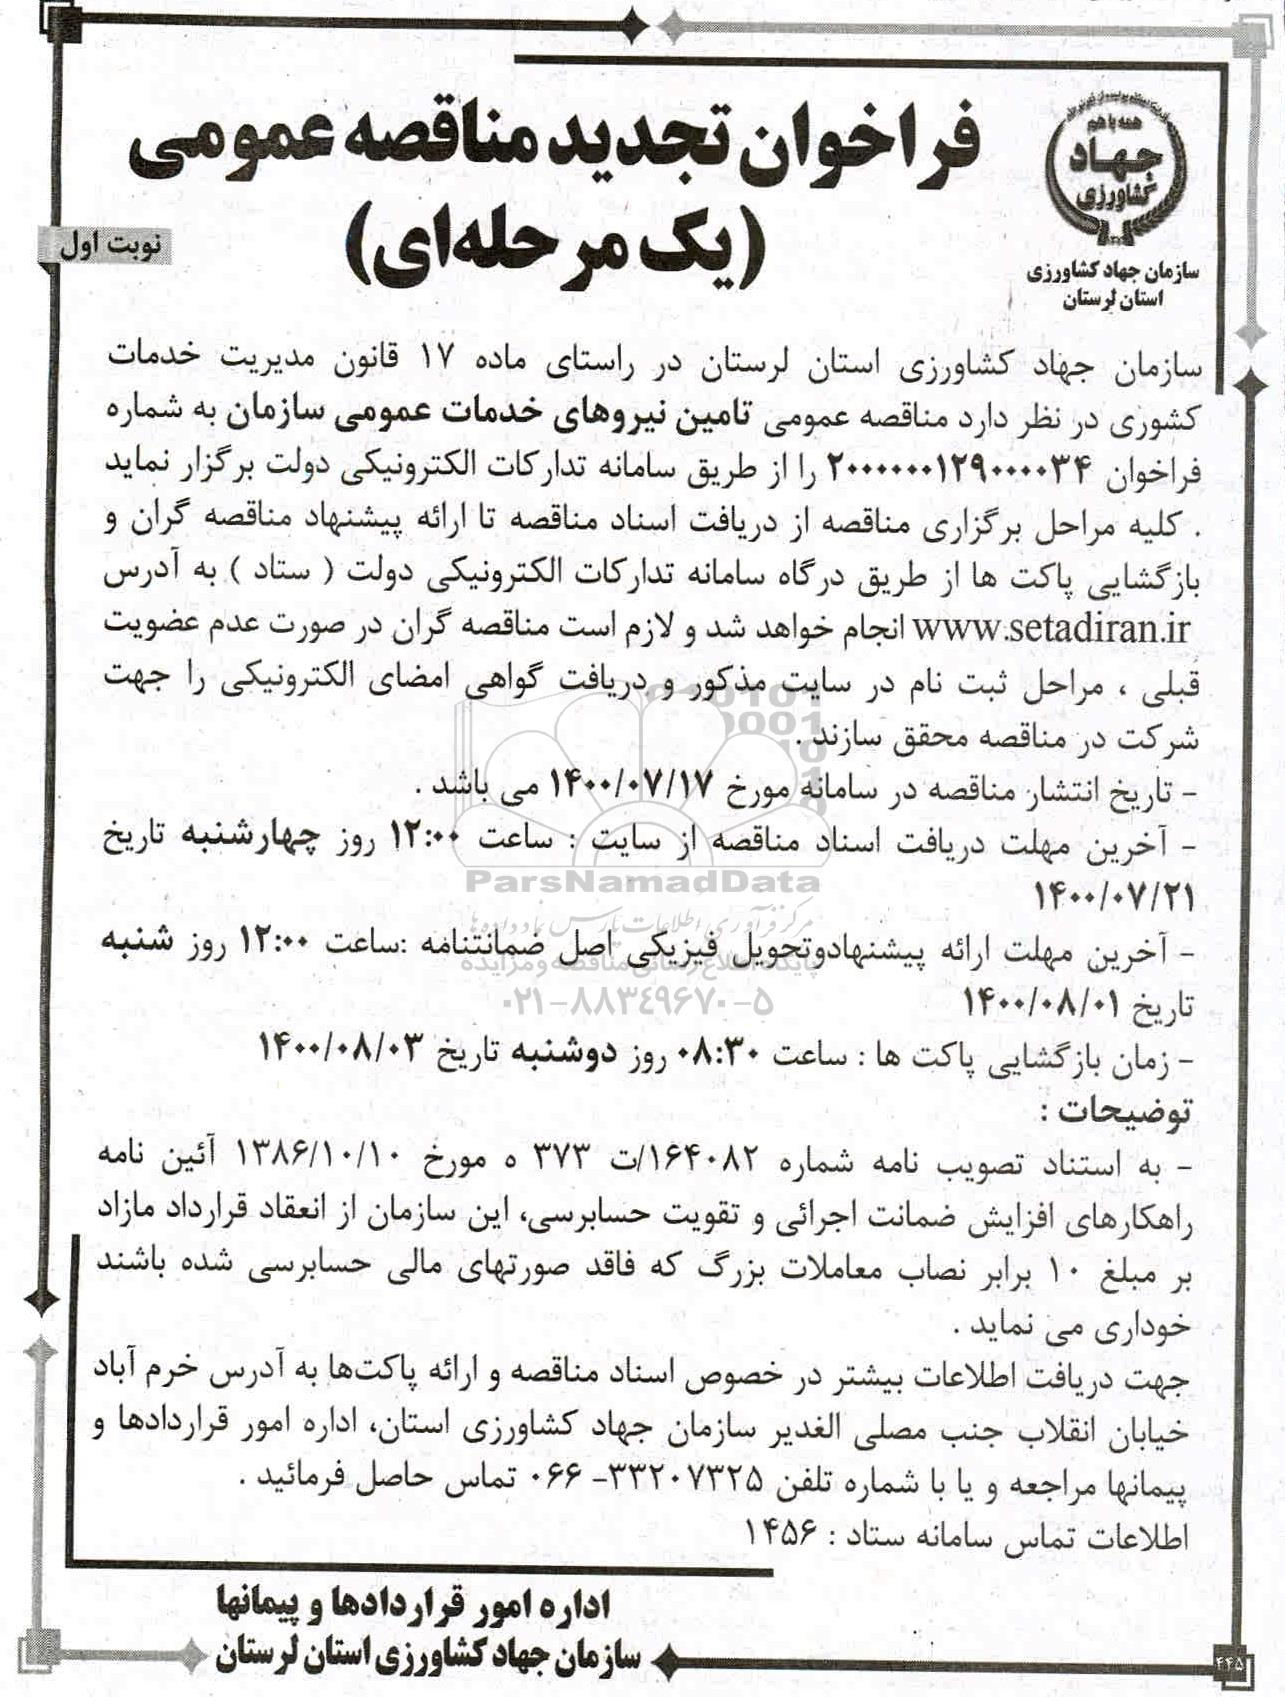 فراخوان تجدید مناقصه عمومی
(یک مرحله‌ای)
نوبت اول
همه با هم
جهاد
کشاورزی
سازمان جهاد کشاورزی
استان لرستان
سازمان جهاد کشاورزی استان لرستان در راستای ماده ۱۷ قانون مدیریت خدمات
کشوری در نظر دارد مناقصه عمومی تامین نیروهای خدمات عمومی سازمان به شماره
فراخوان ۲۰۰۰۰۰۰۱۲۹۰۰۰۰۳۴ را از طریق سامانه تدارکات الکترونیکی دولت برگزار نماید
. کلیه مراحل برگزاری مناقصه از دریافت اسناد مناقصه تا ارائه پیشنهاد مناقصه گران و
بازگشایی پاکت ها از طریق درگاه سامانه تدارکات الکترونیکی دولت ( ستاد ) به آدرس
www.setadiran.ir انجام خواهد شد و لازم است مناقصه گران در صورت عدم عضویت
قبلی ، مراحل ثبت نام در سایت مذکور و دریافت گواهی امضای الکترونیکی را جهت
شرکت در مناقصه محقق سازند .
- تاریخ انتشار مناقصه در سامانه مورخ ۱۴۰۰/۰۷/۱۷ می باشد .
- آخرین مهلت دریافت اسناد مناقصه از سایت : ساعت ۱۲:۰۰ روز چهارشنبه تاریخ
۱۴۰۰/۰۷/۲۱
ParsNamadData
مرکز فرآوری اطلاعات پارس نماد داده‌ها
- آخرین مهلت ارائه پیشنهادوتحویل فیزیکی اصل ضمانتنامه :ساعت ۱۲:۰۰ روز شنبه
پایگاه اطلاع رسانی مناقصه و مزایده
تاریخ ۱۴۰۰/۰۸/۰۱
۰۲۱-۸۸۳۴۹۶۷۰-۵
- زمان بازگشایی پاکت ها : ساعت ۰۸:۳۰ روز دوشنبه تاریخ ۱۴۰۰/۰۸/۰۳
توضیحات :
- به استناد تصویب نامه شماره ۱۶۴۰۸۲/ت ۳۷۳ ه مورخ ۱۳۸۶/۱۰/۱۰ آئین نامه
راهکارهای افزایش ضمانت اجرائی و تقویت حسابرسی، این سازمان از انعقاد قرارداد مازاد
بر مبلغ ۱۰ برابر نصاب معاملات بزرگ که فاقد صورتهای مالی حسابرسی شده باشند
خوداری می نماید .
جهت دریافت اطلاعات بیشتر در خصوص اسناد مناقصه و ارائه پاکت‌ها به آدرس خرم آباد
خیابان انقلاب جنب مصلی الغدیر سازمان جهاد کشاورزی استان، اداره امور قراردادها و
پیمانها مراجعه و یا با شماره تلفن ۳۳۲۰۷۳۲۵- ۰۶۶ تماس حاصل فرمائید .
اطلاعات تماس سامانه ستاد : ۱۴۵۶
اداره امور قراردادها و پیمانها
سازمان جهاد کشاورزی استان لرستان
۴۴۵